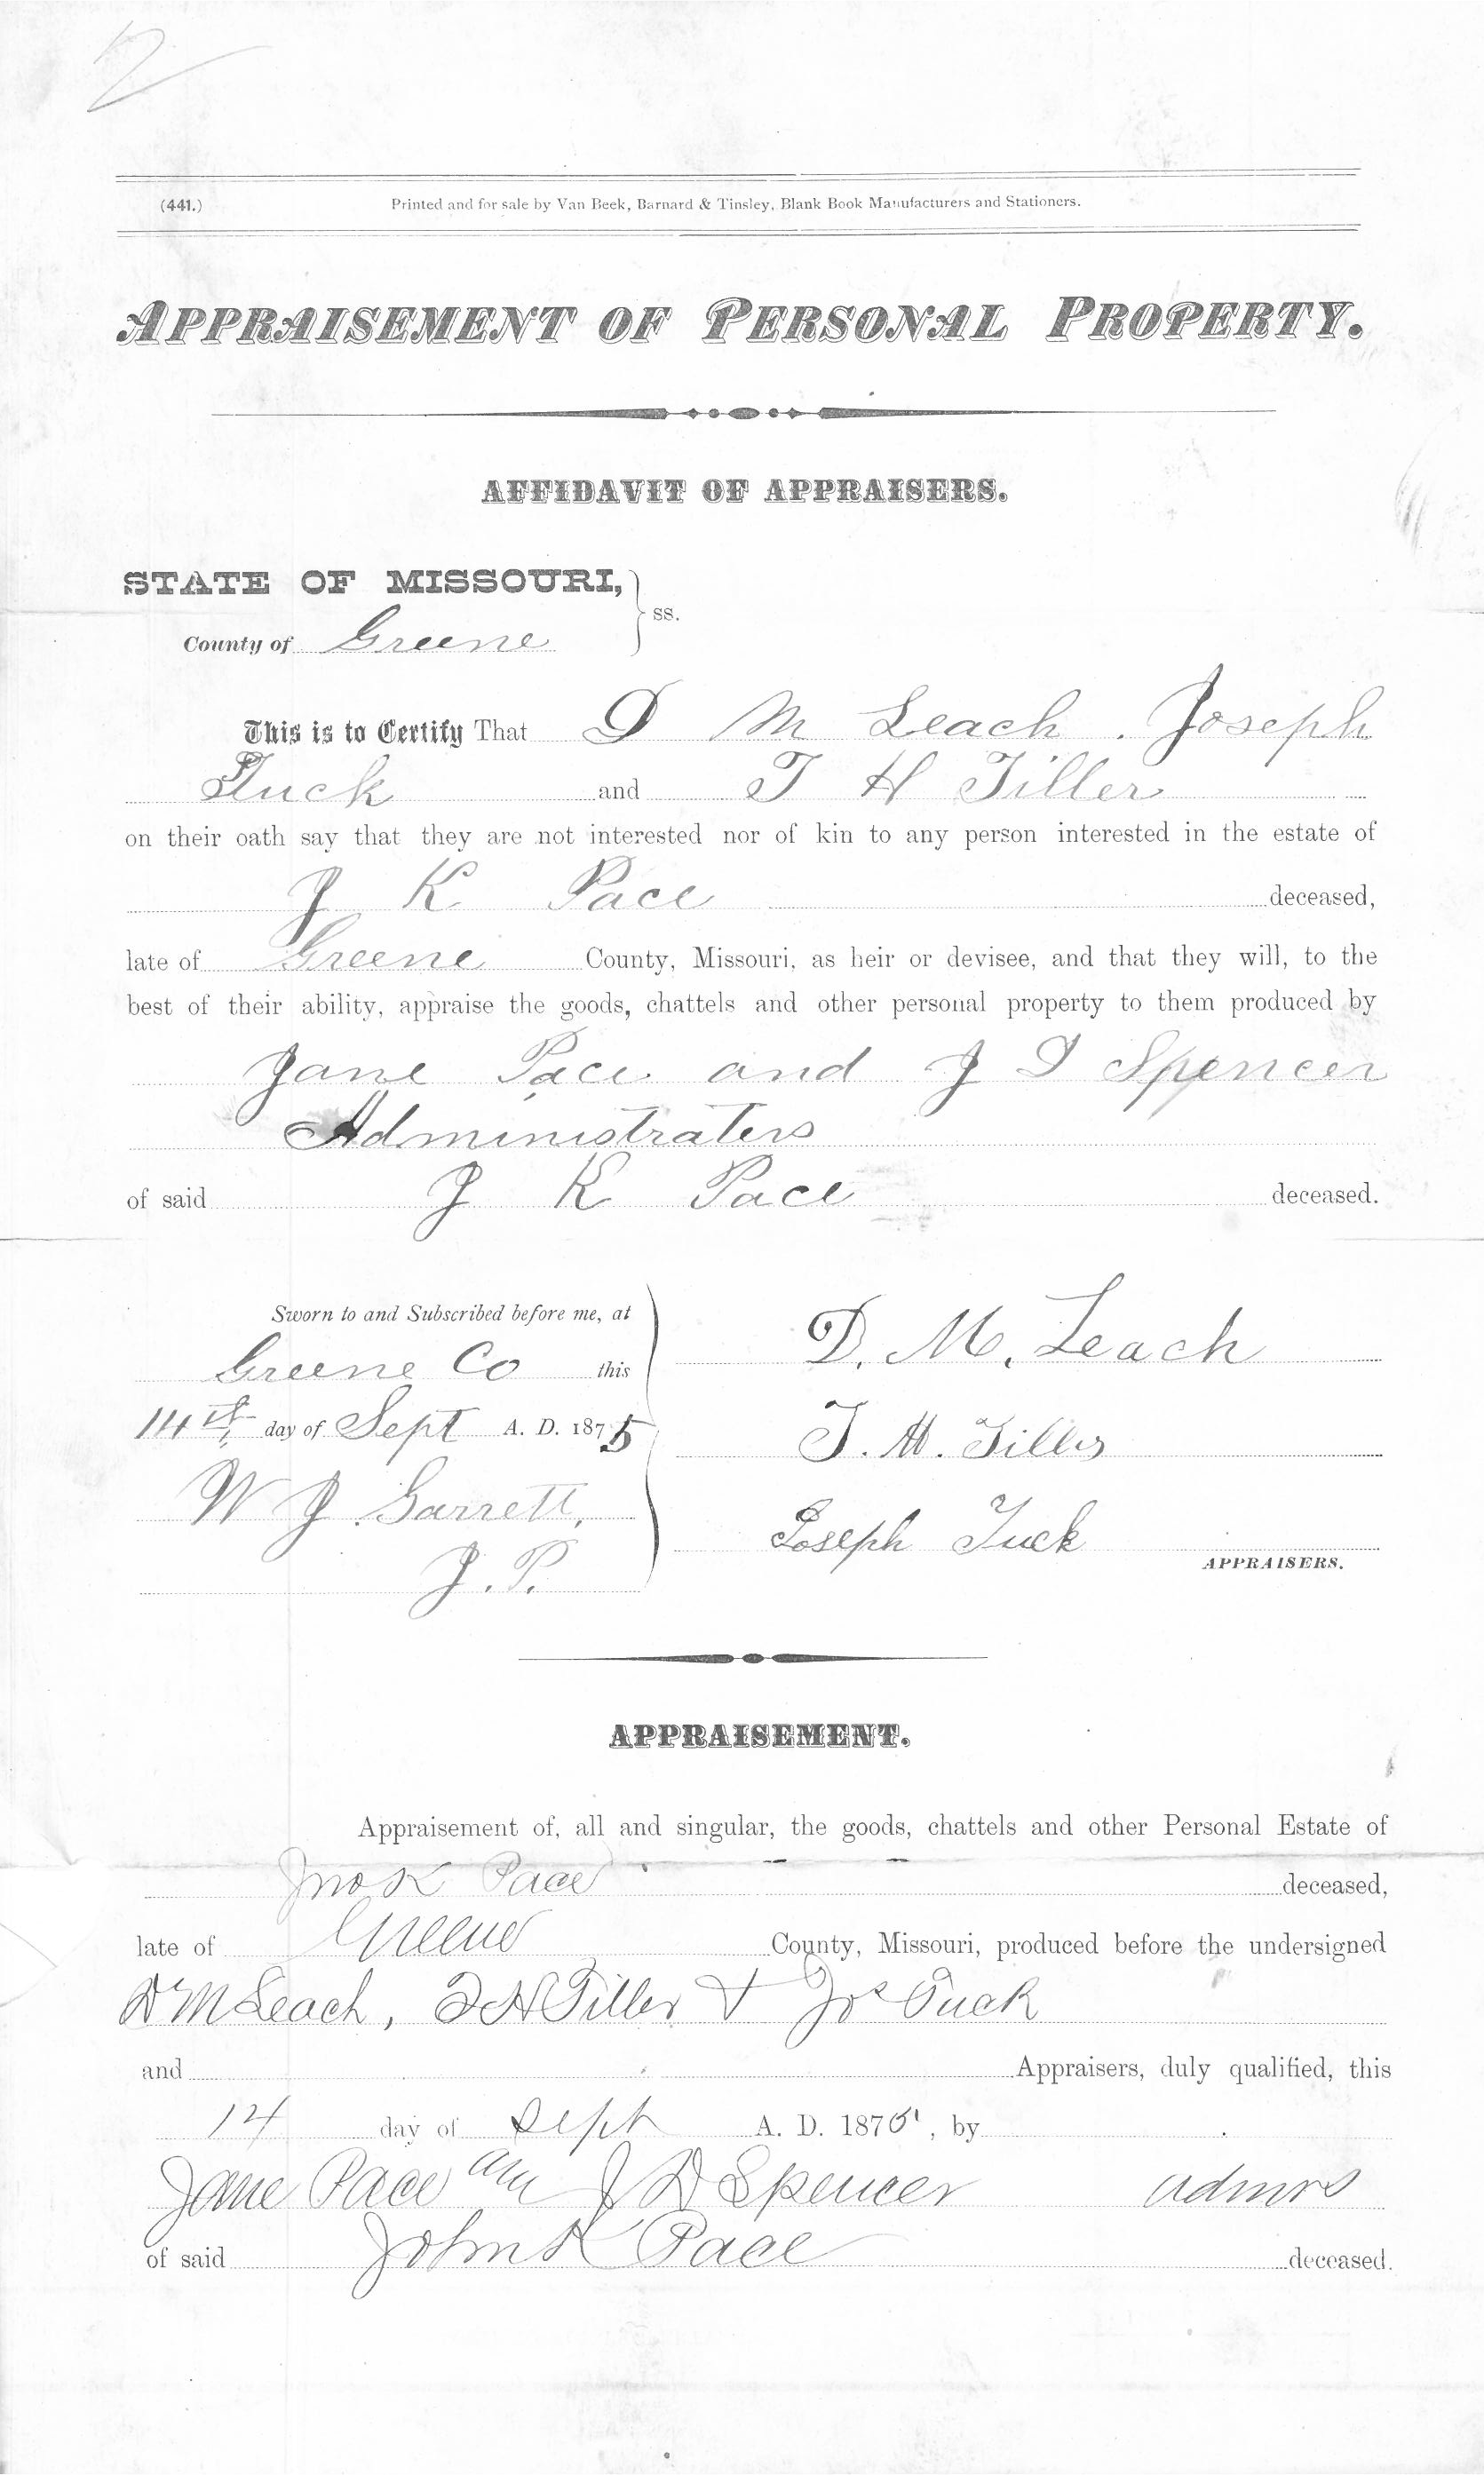 2
(441.) Printed and for sale by Van Beek, Barnard & Tinsley, Blank Book Manufacturers and Stationers.
APPRAISEMENT OF PERSONAL PROPERTY.
AFFIDAVIT OF APPRAISERS.
STATE OF MISSOURI,
County of Greene ss.
This is to Certify That D M Leach . Joseph
Tuck and T H Tiller
on their oath say that they are not interested nor of kin to any person interested in the estate of
J K Pace deceased,
late of Greene County, Missouri, as heir or devisee, and that they will, to the
best of their ability, appraise the goods, chattels and other personal property to them produced by
Jane Pace and J D Spencer
Administraters
of said J K Pace deceased.
Sworn to and Subscribed before me, at
Greene Co this
14th day of Sept A. D. 1875
W J Garrett,
J. P.
D. M. Leach
T. H. Tiller
Joseph Tuck
APPRAISERS.
APPRAISEMENT.
Appraisement of, all and singular, the goods, chattels and other Personal Estate of
Jno K Pace deceased,
late of Greene County, Missouri, produced before the undersigned
D M Leach, T H Tiller + Jos Tuck
and Appraisers, duly qualified, this
14 day of Sept A. D. 1875, by
Jane Pace and J D Spencer admrs
of said John K Pace deceased.